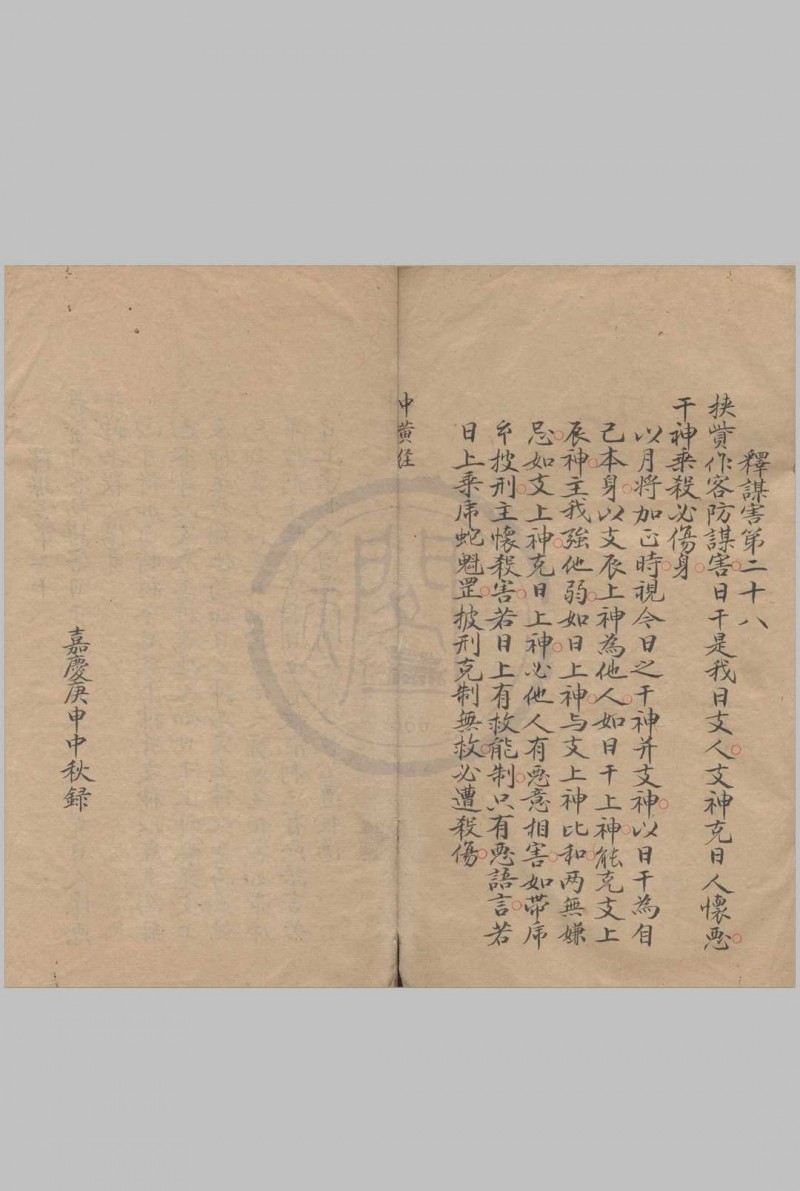 釋謀害第二十八
挾貲作客防謀害日干是我日支人支神克日人懷惡
干神乗殺必傷身
以月將加正時視今日之干神并支神以日干為自
己本身以支辰上神為他人如日干上神能克支上
辰神主我強他弱如日上神与支上神比和两無嫌
忌如支上神克日上神必他人有惡意相害如帶虎
乡披刑主懷殺害若日上有救能制只有惡語言若
日上乗虎蛇魁罡披刑克制無救必遭殺傷
中黄经
嘉慶庚申中秋録